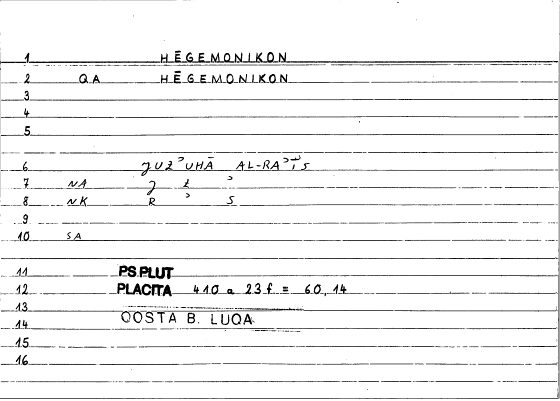 1 HĒGEMONIKON
2 QA HĒGEMONIKON
3
4
5
6 ǦUZʾUHĀ AL-RAʾĪS
7 NA Ǧ Z ʾ
8 NK R ʾ S
9
10 SA
11 PS.PLUT
12 PLACITA 410 a 23 f = 60,14
13
14 QOSTA B. LUQA
15
16